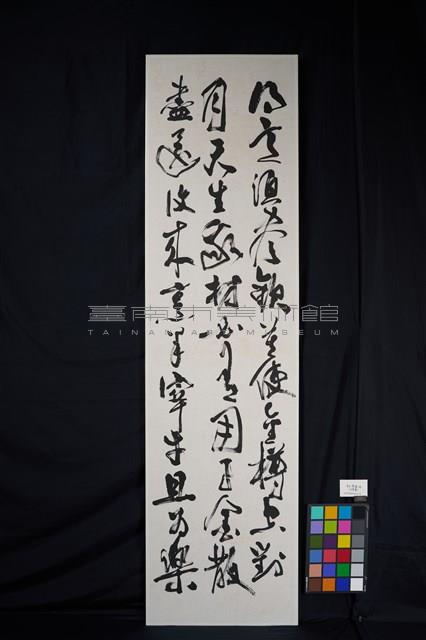 得意須盡歡莫使金樽空對
月天生我材必有用千金散
盡還復來烹羊宰牛且為樂
臺南市美術館
TAINAN ART MUSEUM